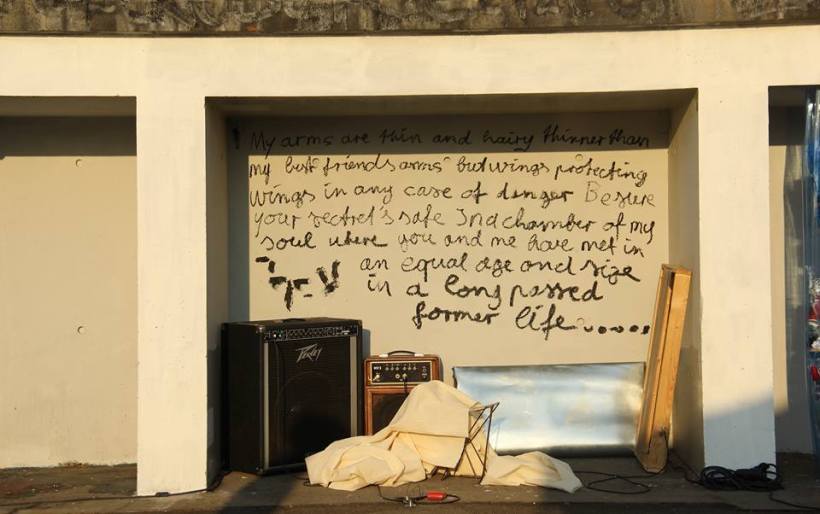 My arms are thin and hairy thinner than
my best friends arms but wings protecting
wings in any case of danger Be sure
your secret's safe Ind chamber of my
soul where you and me have met in
an equal age and size
in a long passed
former life......
PEAVEY